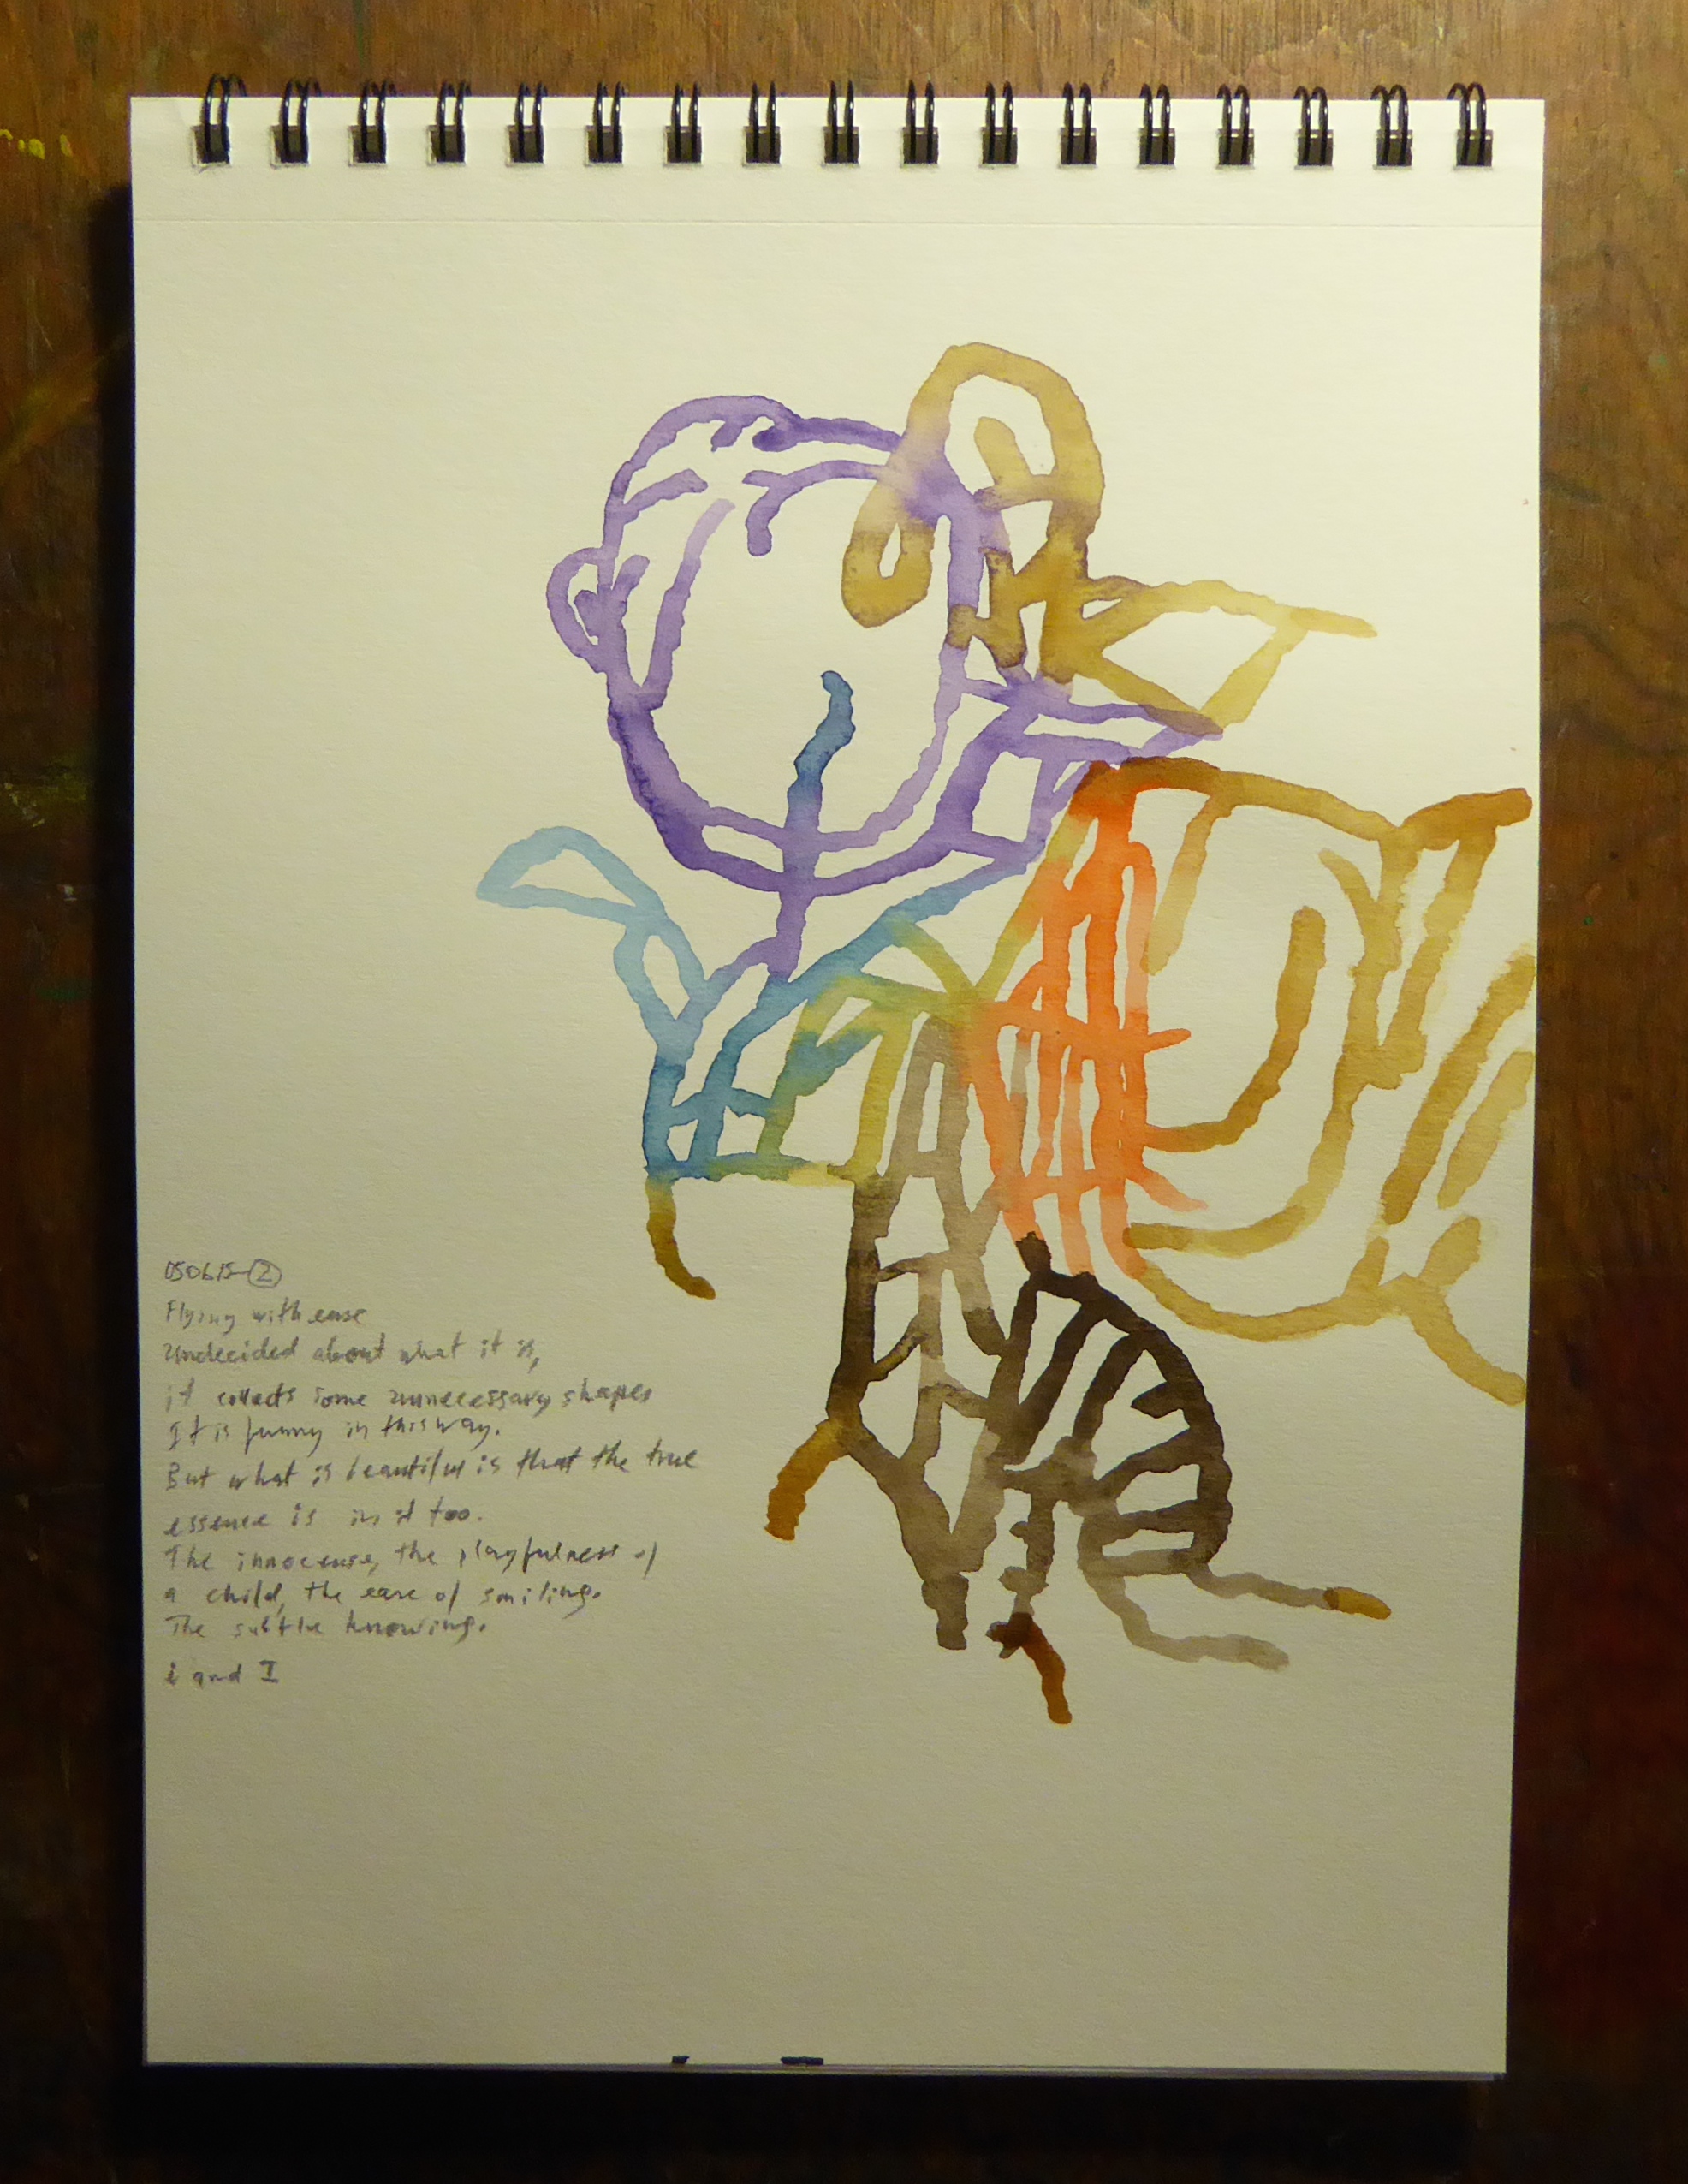 050615-②
Flying with ease
Undecided about what it is,
it collects some unnecessary shapes
It is funny in this way.
But what is beautiful is that the true
essence is in it too.
The innocense, the playfulness of
a child, the ease of smiling.
The subtle knowing.
i and I